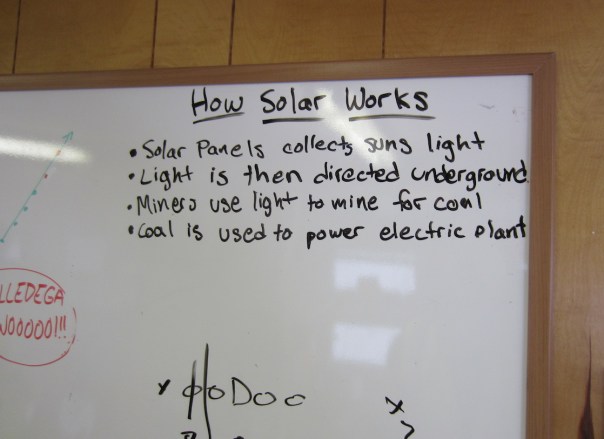 How Solar Works
• Solar Panels collects suns light
• Light is then directed underground
• Miners use light to mine for coal
• Coal is used to power electric plant
LLEDEGA
NOOOOO!!!